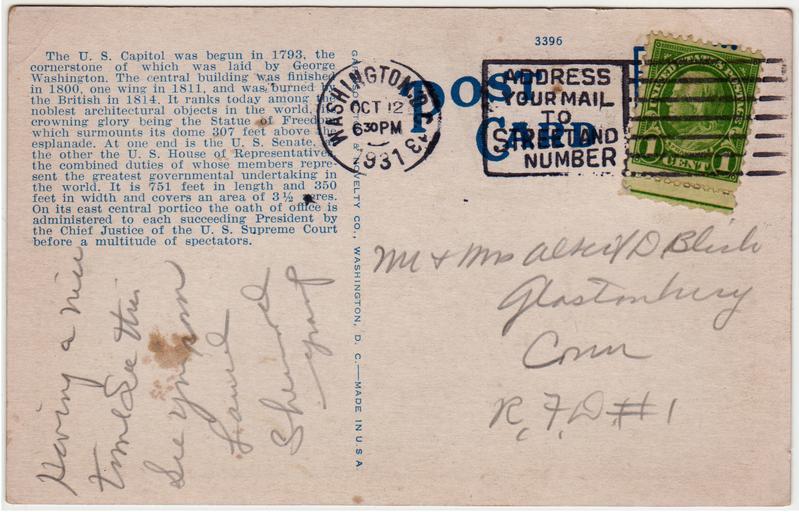 The U. S. Capitol was begun in 1793, the
cornerstone of which was laid by George
Washington. The central building was finished
in 1800, one wing in 1811, and was burned by
the British in 1814. It ranks today among the
noblest architectural objects in the world, its
crowning glory being the Statue of Freedom
which surmounts its dome 307 feet above the
esplanade. At one end is the U. S. Senate,
the other the U. S. House of Representatives
the combined duties of whose members repre-
sent the greatest governmental undertaking in
the world. It is 751 feet in length and 350
feet in width and covers an area of 3½ acres.
On its east central portico the oath of office is
administered to each succeeding President by
the Chief Justice of the U. S. Supreme Court
before a multitude of spectators.
Having a nice
time
See you soon
& NOVELTY CO., WASHINGTON, D. C.—MADE IN U S A
3396
POST
CARD
WASHINGTON, D.C.
OCT 12
6 30 PM
1931
ADDRESS
YOUR MAIL
TO
STREET AND
NUMBER
UNITED STATES POSTAGE
1 CENT 1
Mr & Mrs D Blish
Glastonbury
Conn
R. F. D. #1